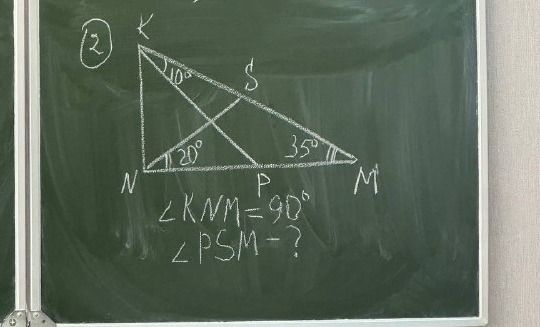 2
K
10°
S
20°
35°
N
P
M
∠KNM=90°
∠PSM-?